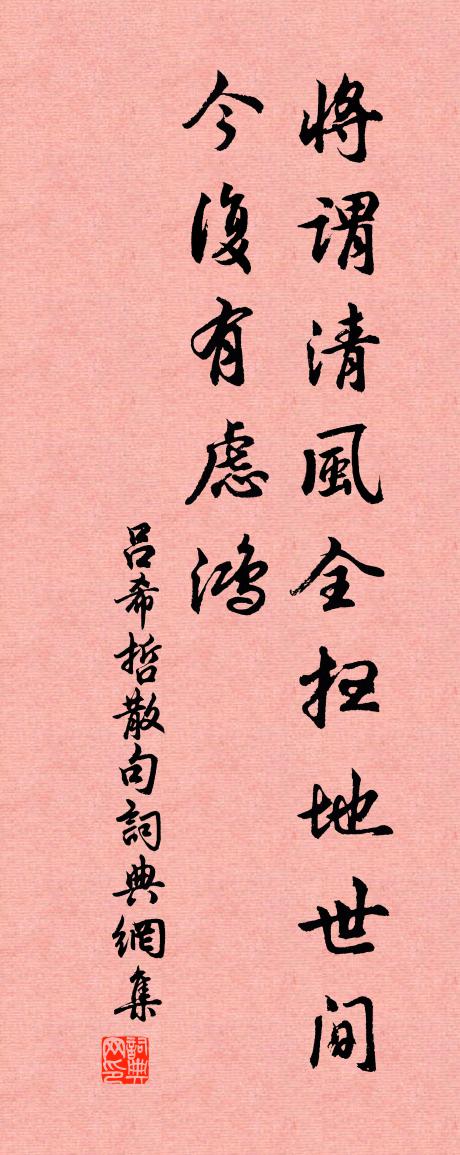 將謂清風全扫地世间
今復有慮鴻
呂希哲散句詞典網集
詞典
网印